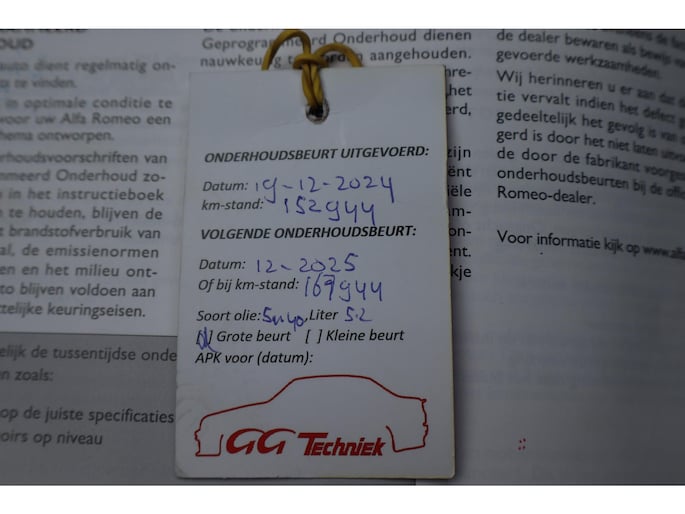 OUD
auto dient regelmatig on-
ts te vinden.
in optimale conditie te
voor uw Alfa Romeo een
hema ontworpen.
rhoudsvoorschriften van
mmeerd Onderhoud zo-
n in het instructieboek
n te houden, blijven de
t brandstofverbruik van
al, de emissienormen
en en het milieu ont-
to blijven voldoen aan
ttelijke keuringseisen.
elijk de tussentijdse onde
n zoals:
op de juiste specificaties
oirs op niveau
Geprogrammeerd Onderhoud dienen
nauwkeurig te worden aangehouden.
ONDERHOUDSBEURT UITGEVOERD:
Datum: 19-12-2024
km-stand: 152944
VOLGENDE ONDERHOUDSBEURT:
Datum: 12-2025
Of bij km-stand: 167944
Soort olie: 5W40, Liter 5.2
[ ] Grote beurt [ ] Kleine beurt
APK voor (datum):
GG Techniek
de dealer bewaren als bewijs van
gevoerde werkzaamheden.
Wij herinneren u er aan dat de
tie vervalt indien het defect g
gedeeltelijk het gevolg is van
gerd is door het niet laten uitvo
de door de fabrikant voorges
onderhoudsbeurten bij de offi
Romeo-dealer.
Voor informatie kijk op www.alfa